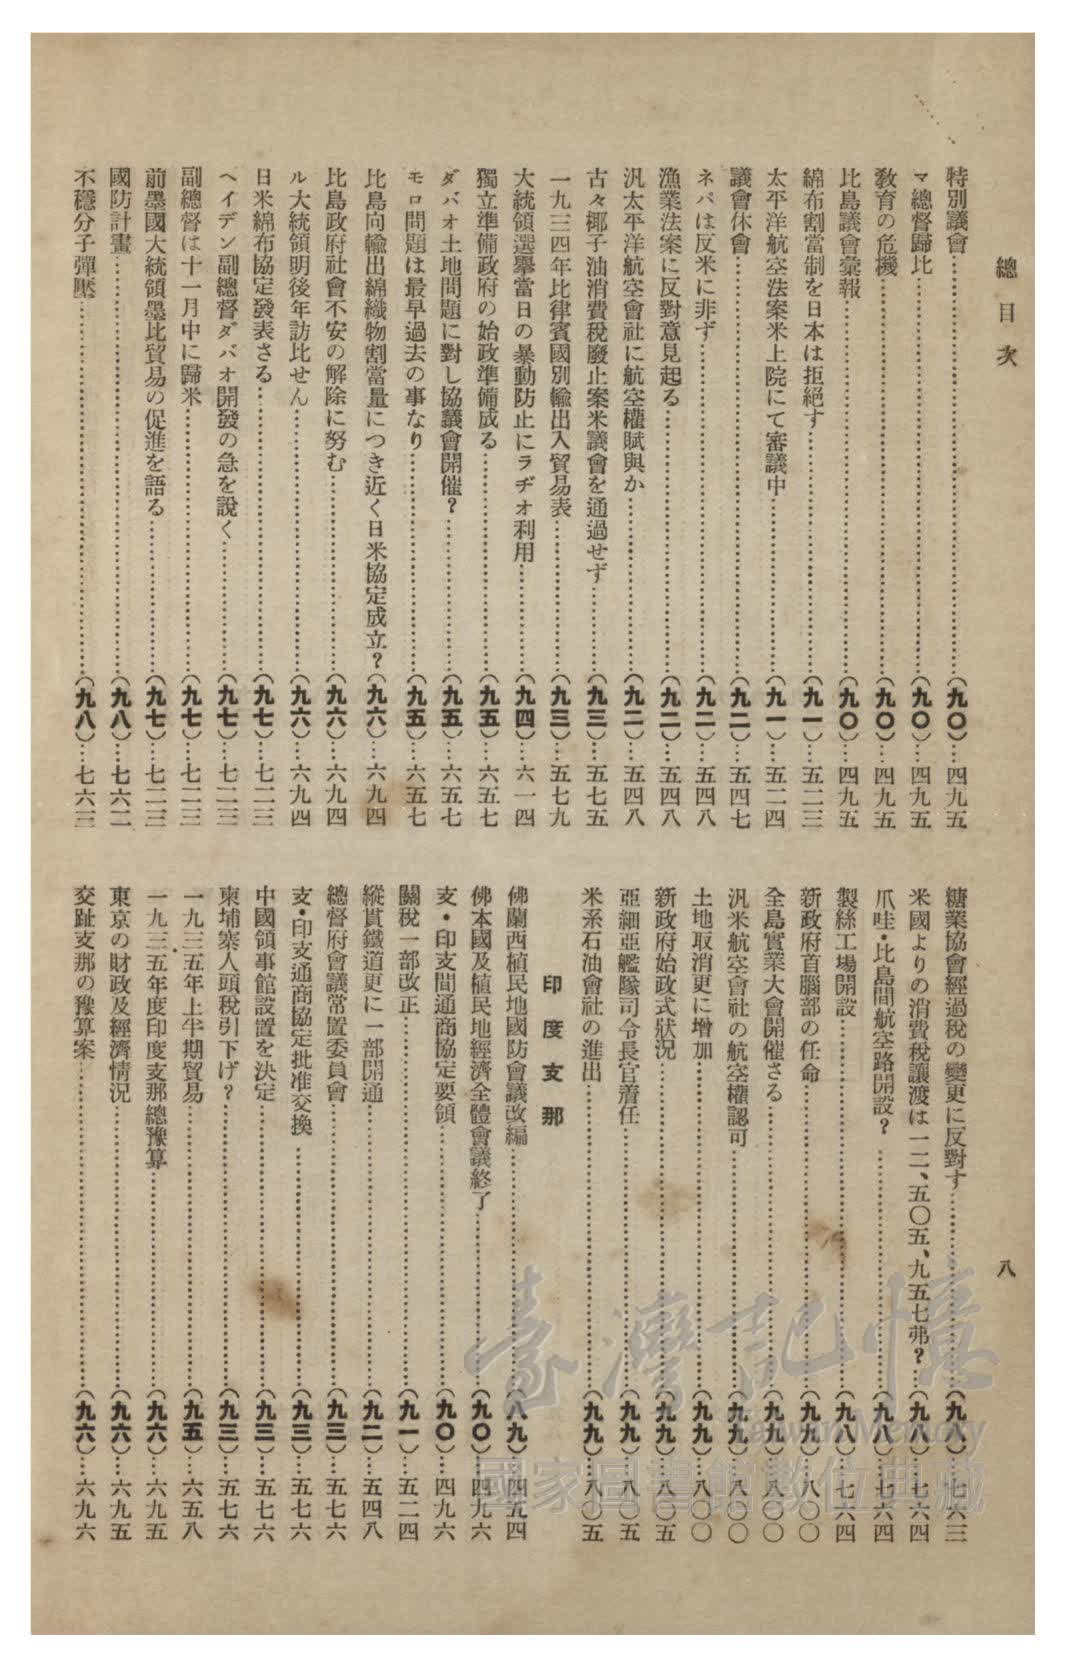 總目次
八
特別議會…(九〇)…四九五
マ總督歸比…(九〇)…四九五
敎育の危機…(九〇)…四九五
比島議會彙報…(九〇)…四九五
綿布割當制を日本は拒絕す…(九一)…五二三
太平洋航空法案米上院にて審議中…(九一)…五二四
議會休會…(九二)…五四七
ネパは反米に非ず…(九二)…五四八
漁業法案に反對意見起る…(九二)…五四八
汎太平洋航空會社に航空權賦與か…(九二)…五四八
古々椰子油消費稅廢止案米議會を通過せず…(九三)…五七五
一九三四年比律賓國別輸出入貿易表…(九三)…五七九
大統領選擧當日の暴動防止にラヂオ利用…(九四)…六一四
獨立準備政府の始政準備成る…(九五)…六五七
ダバオ土地問題に對し協議會開催？…(九五)…六五七
モロ問題は最早過去の事なり…(九五)…六五七
比島向輸出綿織物割當量につき近く日米協定成立？(九六)…六九四
比島政府社會不安の解除に努む…(九六)…六九四
ル大統領明後年訪比せん…(九六)…六九四
日米綿布協定發表さる…(九七)…七二三
ヘイデン副總督ダバオ開發の急を說く…(九七)…七二三
副總督は十一月中に歸米…(九七)…七二三
前墨國大統領墨比貿易の促進を語る…(九七)…七二三
國防計畫…(九八)…七六二
不穩分子彈壓…(九八)…七六三
糖業協會經過稅の變更に反對す…(九八)…七六三
米國よりの消費稅讓渡は一二、五〇五、九五七弗？…(九八)…七六四
爪哇・比島間航空路開設？…(九八)…七六四
製絲工場開設…(九八)…七六四
新政府首腦部の任命…(九九)…八〇〇
全島實業大會開催さる…(九九)…八〇〇
汎米航空會社の航空權認可…(九九)…八〇〇
土地取消更に增加…(九九)…八〇〇
新政府始政式狀況…(九九)…八〇五
亞細亞艦隊司令長官着任…(九九)…八〇五
米系石油會社の進出…(九九)…八〇五
印度支那
佛蘭西植民地國防會議改編…(八九)…四五四
佛本國及植民地經濟全體會議終了…(九〇)…四九六
支・印支間通商協定要領…(九〇)…四九六
關稅一部改正…(九一)…五二四
縱貫鐵道更に一部開通…(九二)…五四八
總督府會議常置委員會…(九三)…五七六
支・印支通商協定批准交換…(九三)…五七六
中國領事館設置を決定…(九三)…五七六
柬埔寨人頭稅引下げ？…(九三)…五七六
一九三五年上半期貿易…(九五)…六五八
一九三五年度印度支那總豫算…(九六)…六九五
東京の財政及經濟情況…(九六)…六九五
交趾支那の豫算案…(九六)…六九六
臺灣記憶
Taiwan Memory
國家圖書館數位典藏